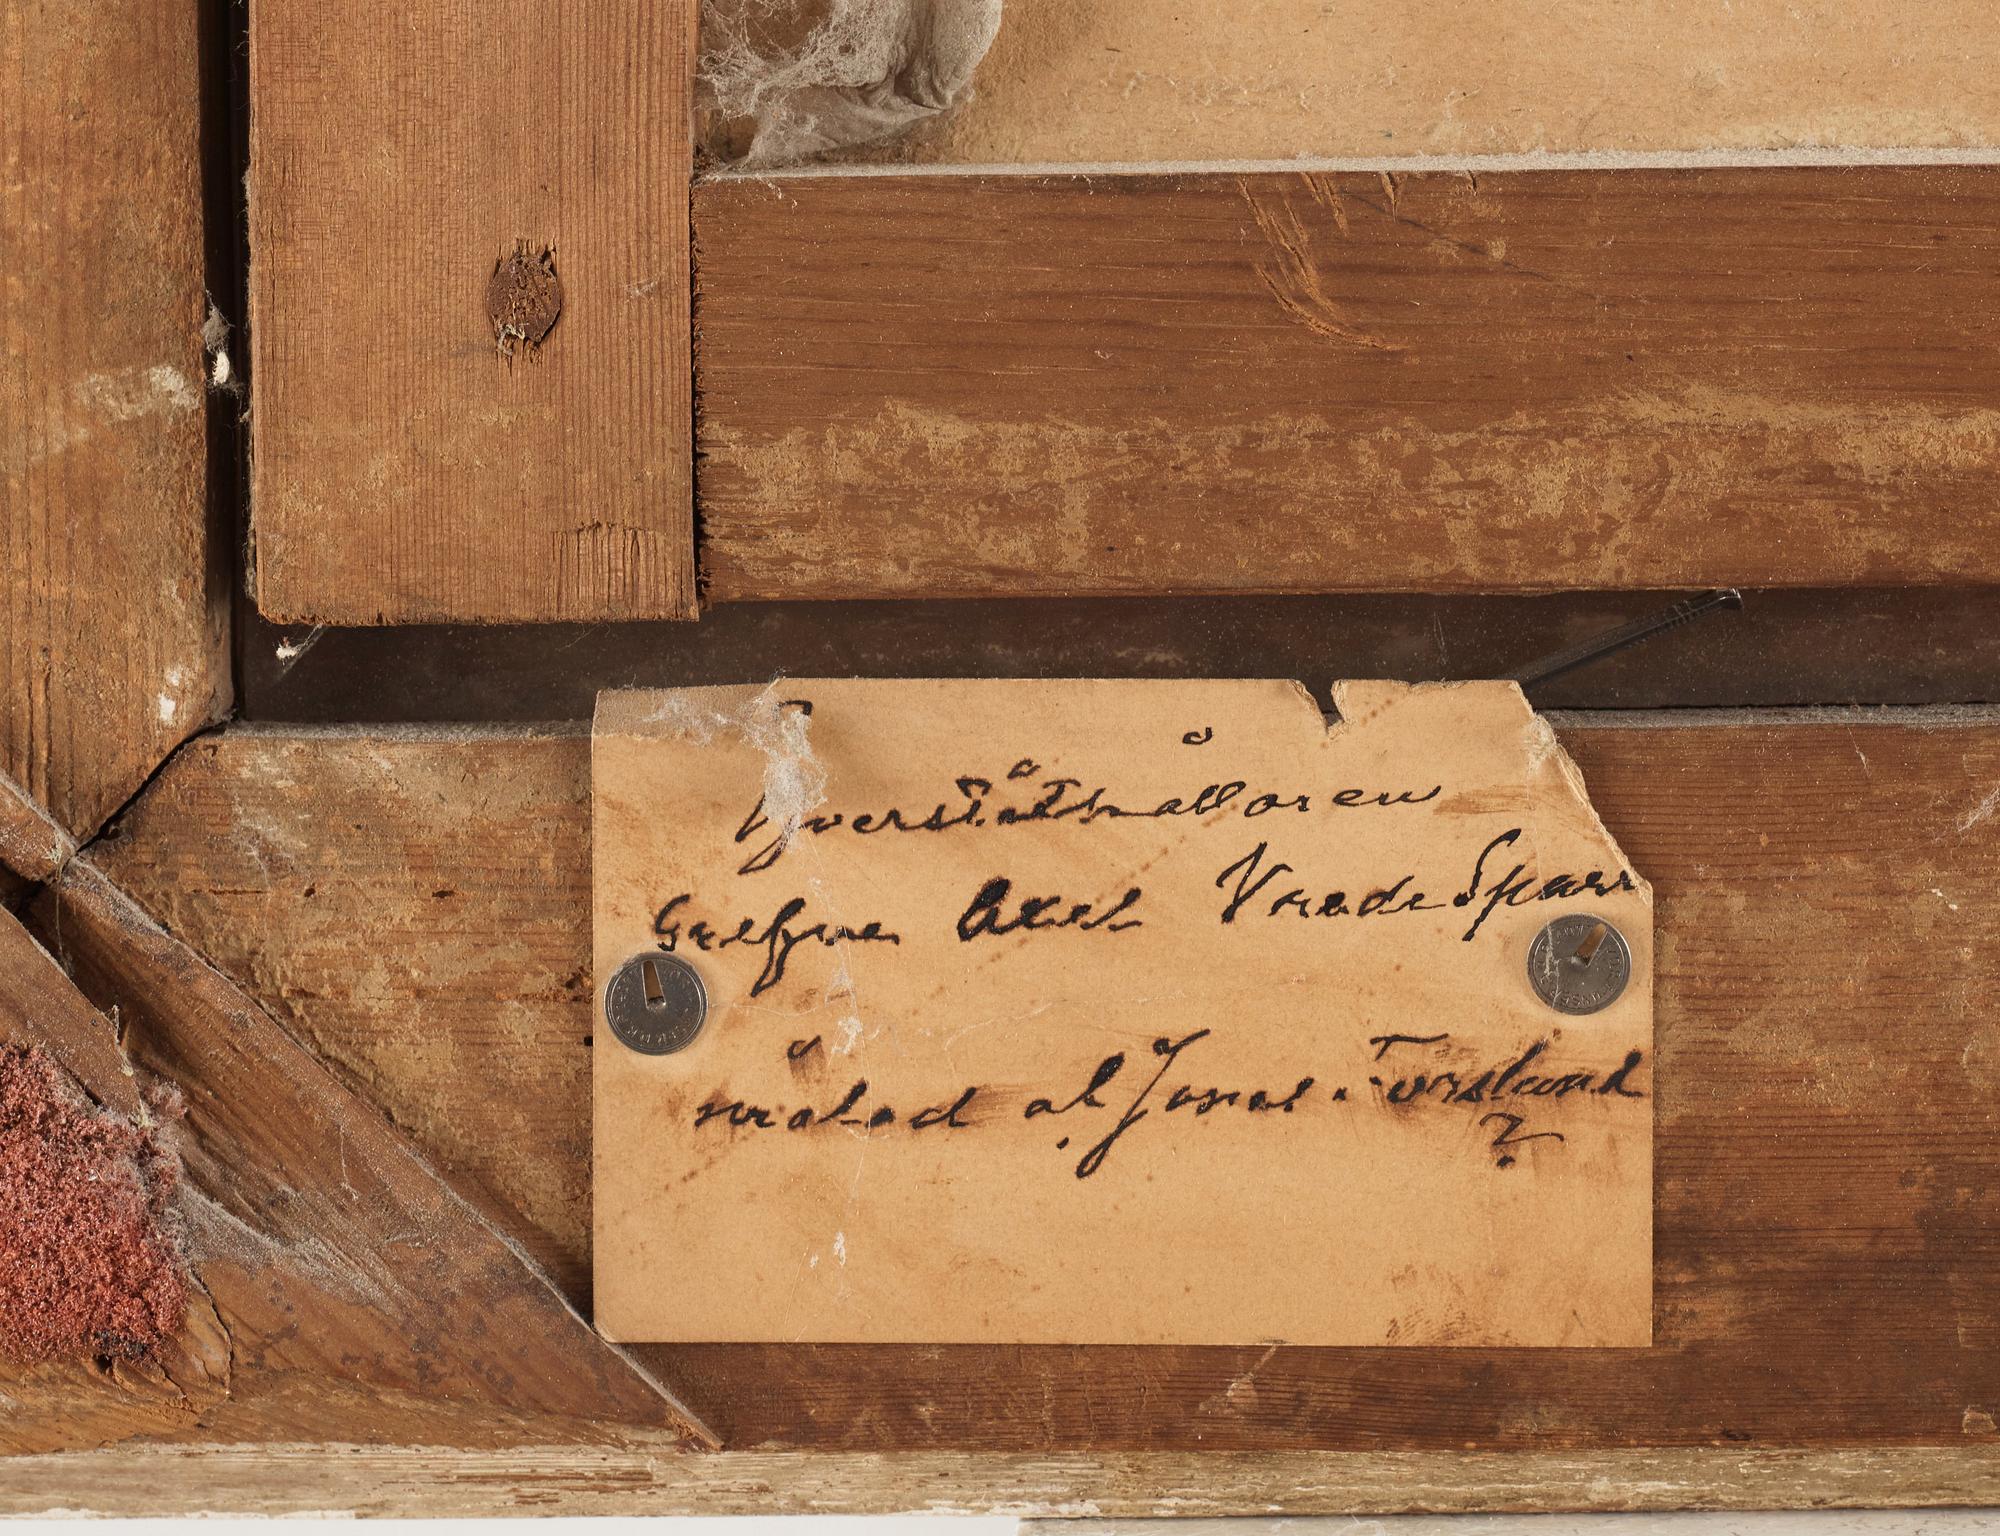 Öfverståthållaren
Grefve Axel Wrede Sparr
målad af Jonas Forslund
?